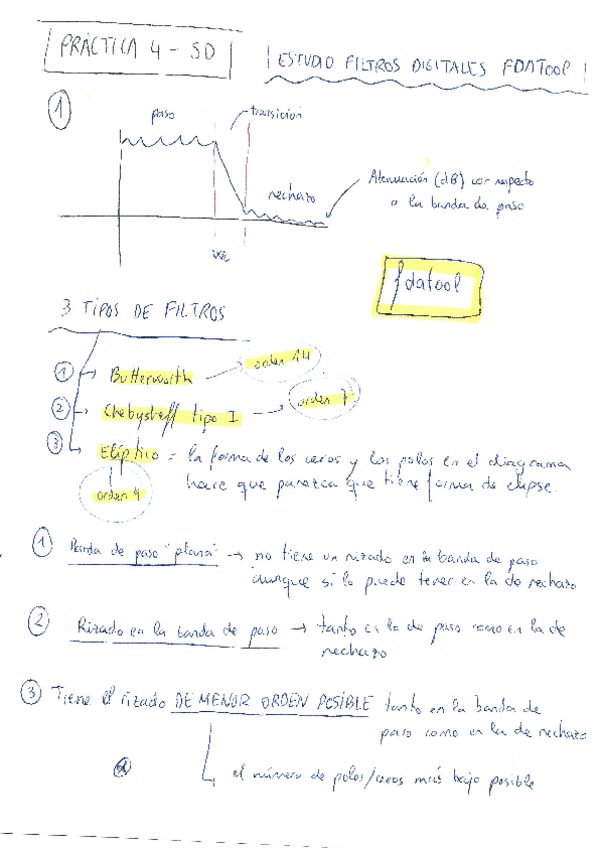 PRÁCTICA 4 - SD
ESTUDIO FILTROS DIGITALES FDATOOL
1
paso
transición
rechazo
Atenuación (dB) con respecto
a la banda de paso
fdatool
3 TIPOS DE FILTROS
1 → Butterworth → orden 14
2 → Chebysheff tipo I → orden 7
3 Elíptico = la forma de los ceros y los polos en el diagrama
hace que parezca que tiene forma de elipse.
orden 4
1 Banda de paso "plana" → no tiene un rizado en la banda de paso
aunque si lo puede tener en la de rechazo
2 Rizado en la banda de paso → tanto en la de paso como en la de
rechazo
3 Tiene el rizado DE MENOR ORDEN POSIBLE tanto en la banda de
paso como en la de rechazo
el número de polos/ceros más bajo posible